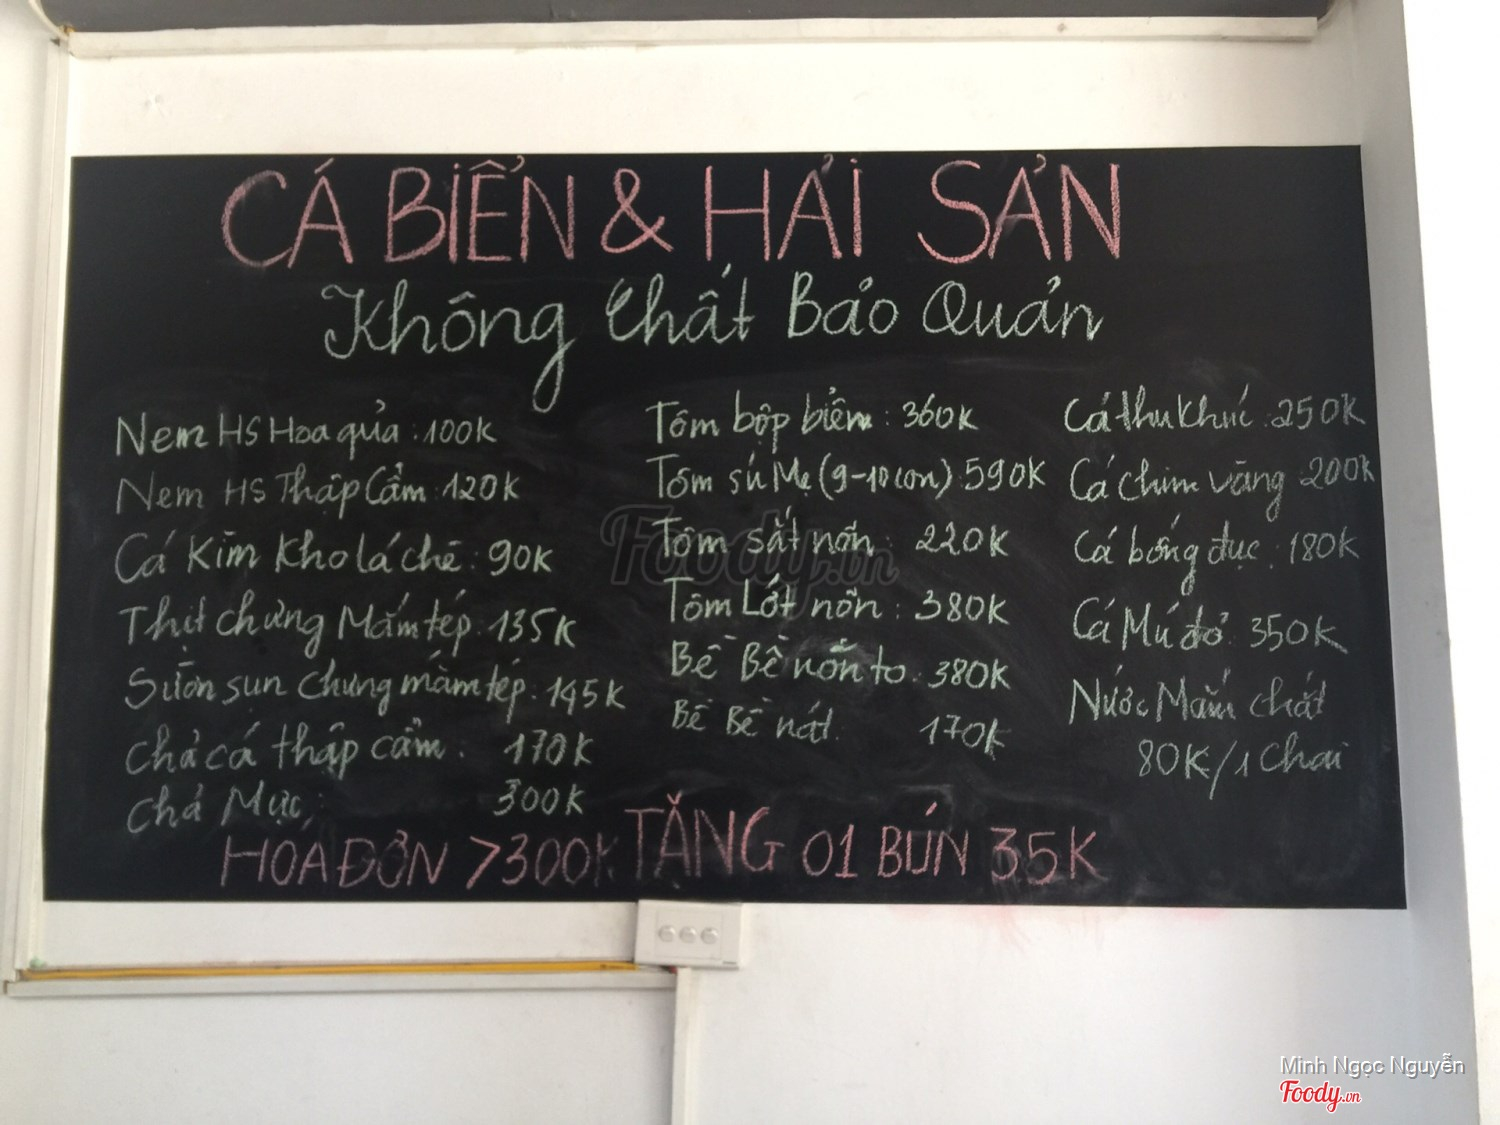 CÁ BIỂN & HẢI SẢN
Không Chất Bảo Quản
Nem HS Hoa quả : 100K
Nem HS Thập Cẩm : 120K
Cá Kìm kho lá chè : 90K
Thịt chưng Mắm tép : 135K
Sườn sụn chưng mắm tép : 145K
Chả cá thập cẩm : 170K
Chả Mực : 300K
Tôm bộp biển : 360K
Tôm sú Mẹ (9-10 con) 590K
Tôm sắt nõn : 220K
Tôm Lớt nõn : 380K
Bề Bề nõn to : 380K
Bề Bề nát 170K
Cá thu khúc : 250K
Cá chim vàng 200K
Cá bống đục : 180K
Cá Mú đỏ : 350K
Nước Mắm chắt
80K/1 chai
HOÁ ĐƠN >300K TẶNG 01 BÚN 35K
Foody.vn
Minh Ngọc Nguyễn
Foody.vn